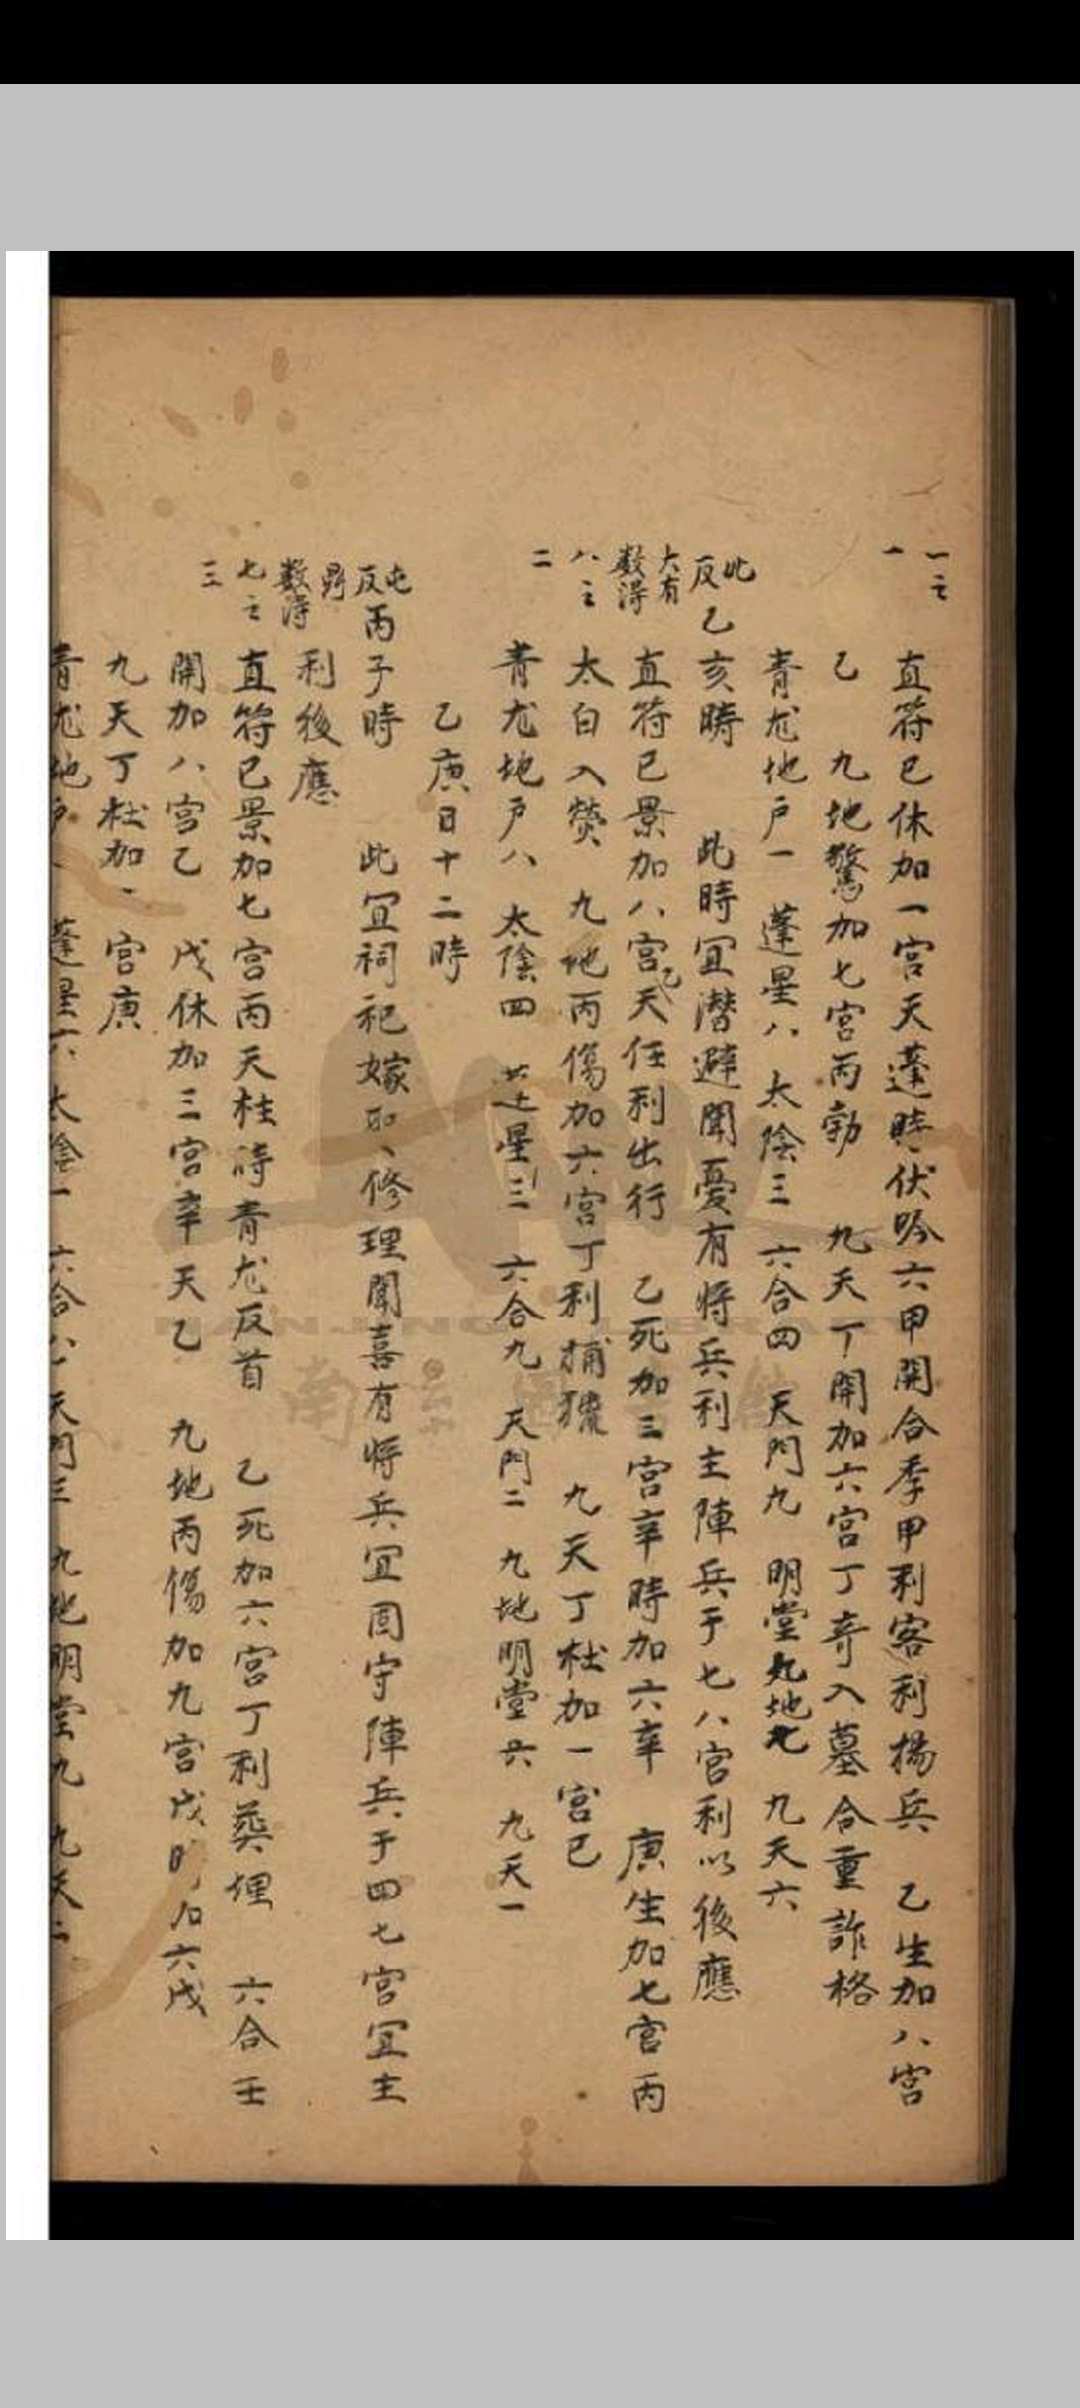 一之
一
直符已休加一宮天蓬時伏吟六甲開合季甲利客利揚兵 乙生加八宮
乙 九地驚加七宮丙勃 九天丁開加六宮丁奇入墓合重詐格
青龙地户一 蓬星八 太陰三 六合四 天門九 明堂九地七 九天六
此
反
乙亥時 此時冝潛避聞憂有將兵利主陣兵于七八宮利以後應
大有
數得
八之
二
直符已景加八宮乙天任利出行 乙死加三宮辛時加六辛 庚生加七宮丙
太白入熒 九地丙傷加六宮丁利捕獵 九天丁杜加一宮已
青龙地户八 太陰四 蓬星三 六合九 天門二 九地明堂六 九天一
乙庚日十二時
屯
反
丙子時 此冝祠祀嫁 修理聞喜有將兵冝固守陣兵于四七宮冝主
鼎
數得
利後應
七之
三
直符已景加七宮丙天柱時青龙反首 乙死加六宮丁利葵埋 六合壬
開加八宮乙 戊休加三宮辛天乙 九地丙傷加九宮戊時加六戊
九天丁杜加 宮庚
青龙地户 蓬星六 太陰一 六合 天門三 九地明堂九 九天二